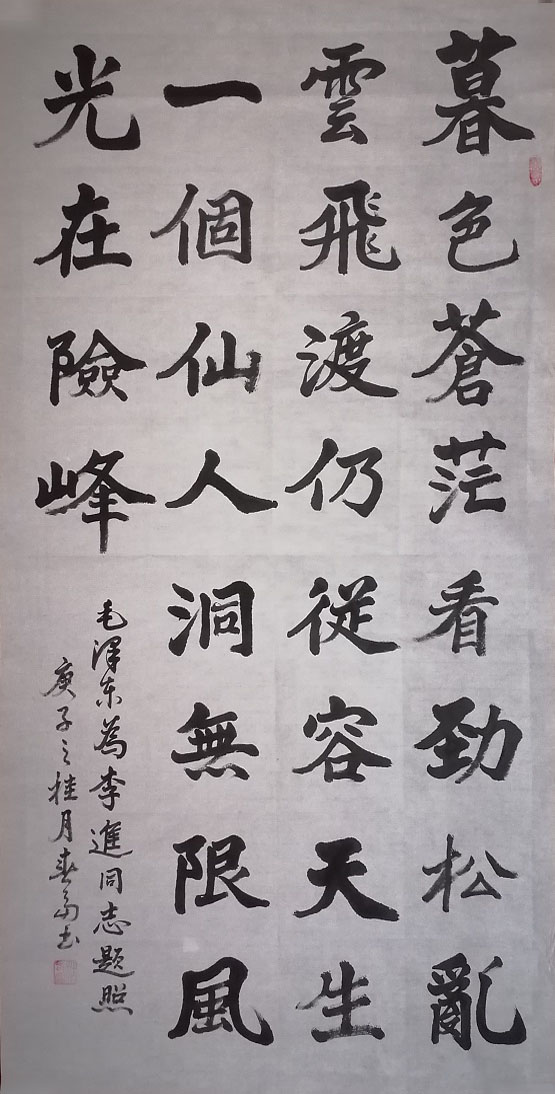 暮色蒼茫看劲松亂
雲飛渡仍從容天生
一個仙人洞無限風
光在險峰
毛澤东為李進同志題照
庚子之桂月